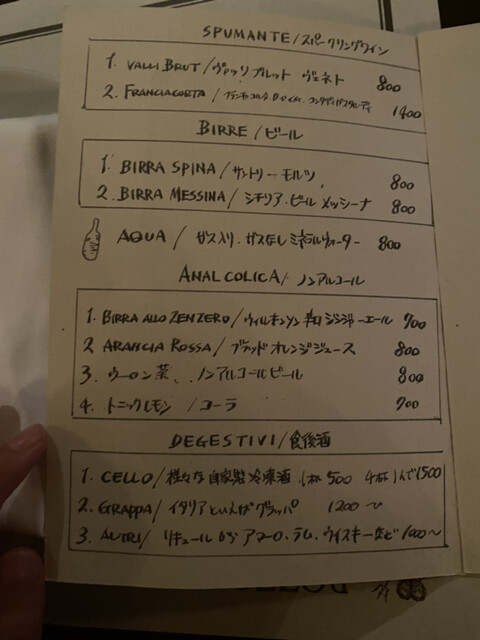 SPUMANTE/スパークリングワイン
1. VALLI BRUT/ヴァッリ ブルット ヴェネト 800
2. FRANCIACORTA/フランチャコルタ 1400
BIRRE/ビール
1. BIRRA SPINA/サントリーモルツ 800
2. BIRRA MESSINA/シチリア.ビール メッシーナ 800
AQUA/ガス入り.ガスなし ミネラルウォーター 800
ANALCOLICA/ノンアルコール
1. BIRRA ALLO ZENZERO/ウィルキンソン 辛口 ジンジャーエール 700
2 ARANCIA ROSSA/ブラッド オレンジジュース 800
3. ウーロン茶、ノンアルコールビール 800
4. トニックレモン/コーラ 700
DEGESTIVI/食後酒
1. CELLO/様々な自家製冷凍酒 1杯 500 4杯 1500
2. GRAPPA/イタリアといえばグラッパ 1200〜
3. AUTRI/リキュール アマーロ.ラム.ウイスキーなど 1000〜